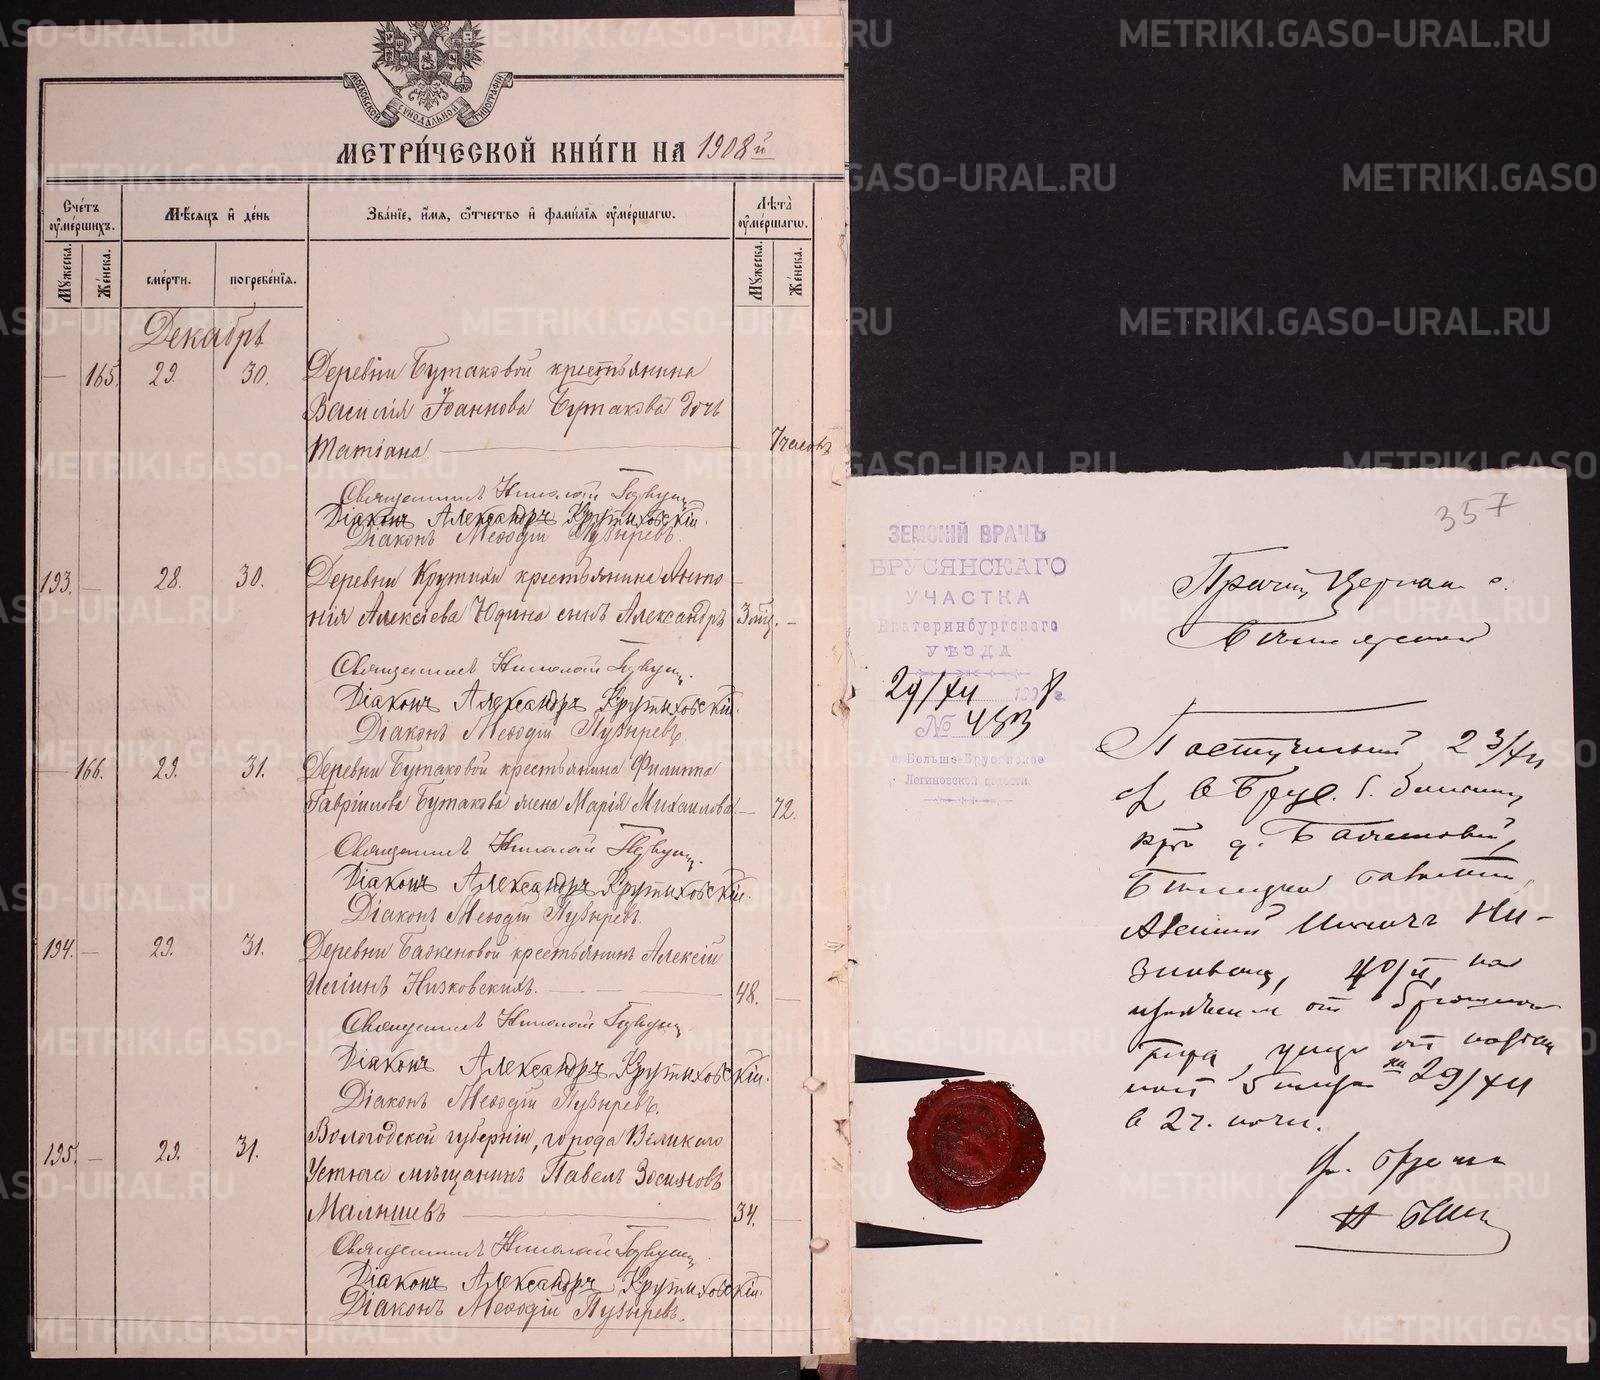 МОСКОВСКОЙ СѴНОДАЛЬНОЙ ТИПОГРАФІИ
МЕТРИ́ЧЕСКОЙ КНИ́ГИ НА 1908й
Сче́тъ ᲂу҆ме́ршихъ.
Мѣ́сяцъ и҆ де́нь
Зва́нїе, и҆́мя, ѻ҆́тчество и҆ фами́лїя ᲂу҆ме́ршагѡ.
Лѣ́та ᲂу҆ме́ршагѡ.
Мꙋ́жеска.
Же́нска.
сме́рти.
погребе́нїѧ.
Мꙋ́жеска.
Же́нска.
Декабрь
— 165. 29. 30. Деревни Бутаковой крестьянина
Василія Іоаннова Бутакова дочь
Татіана 7 часовъ
Священникъ Николай
Діаконъ Александръ Крутиховскій.
Діаконъ Меѳодій Пузыревъ.
193. — 28. 30. Деревни Крутихи крестьянина Анто-
нія Алексіева Юдина сынъ Александръ 3 мѣс. —
Священникъ Николай
Діаконъ Александръ Крутиховскій.
Діаконъ Меѳодій Пузыревъ.
— 166. 29. 31. Деревни Бутаковой крестьянина Филиппа
Гавріилова Бутакова жена Марія Михаилова — 72.
Священникъ Николай
Діаконъ Александръ Крутиховскій.
Діаконъ Меѳодій Пузыревъ.
194. — 29. 31. Деревни Баженовой крестьянинъ Алексій
Иліинъ Низковскихъ. 48. —
Священникъ Николай
Діаконъ Александръ Крутиховскій.
Діаконъ Меѳодій Пузыревъ.
195. — 29. 31. Вологодской губерніи, города Великаго
Устюга мѣщанинъ Павелъ Зосимовъ
Малышевъ 34. —
Священникъ Николай
Діаконъ Александръ Крутиховскій.
Діаконъ Меѳодій Пузыревъ.
357
ЗЕМСКІЙ ВРАЧЪ
БРУСЯНСКАГО
УЧАСТКА
Екатеринбургскаго
УѢЗДА
29/XII 1908 г.
№
с. Больше-Брусянское
Логиновской волости.
Причту Церкви с.
Поступившій 23/XII
в Брус.
кр. д. Баженовой,
волости,
Алексей Ильичъ Ни-
, 40 л,
от брюшного
тифа, умер от
29/XII
в 2 ч. ночи.
METRIKI.GASO-URAL.RU